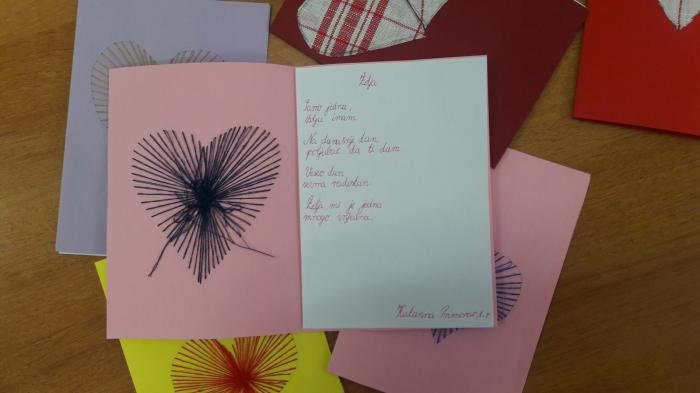 Želja
Samo jednu,
želju imam.
Na današnji dan
poljubac da ti dam.
Veseo dan
veoma radostan.
Želja mi je jedna
mnogo vrijedna.
Katarina Primorac, 5.r